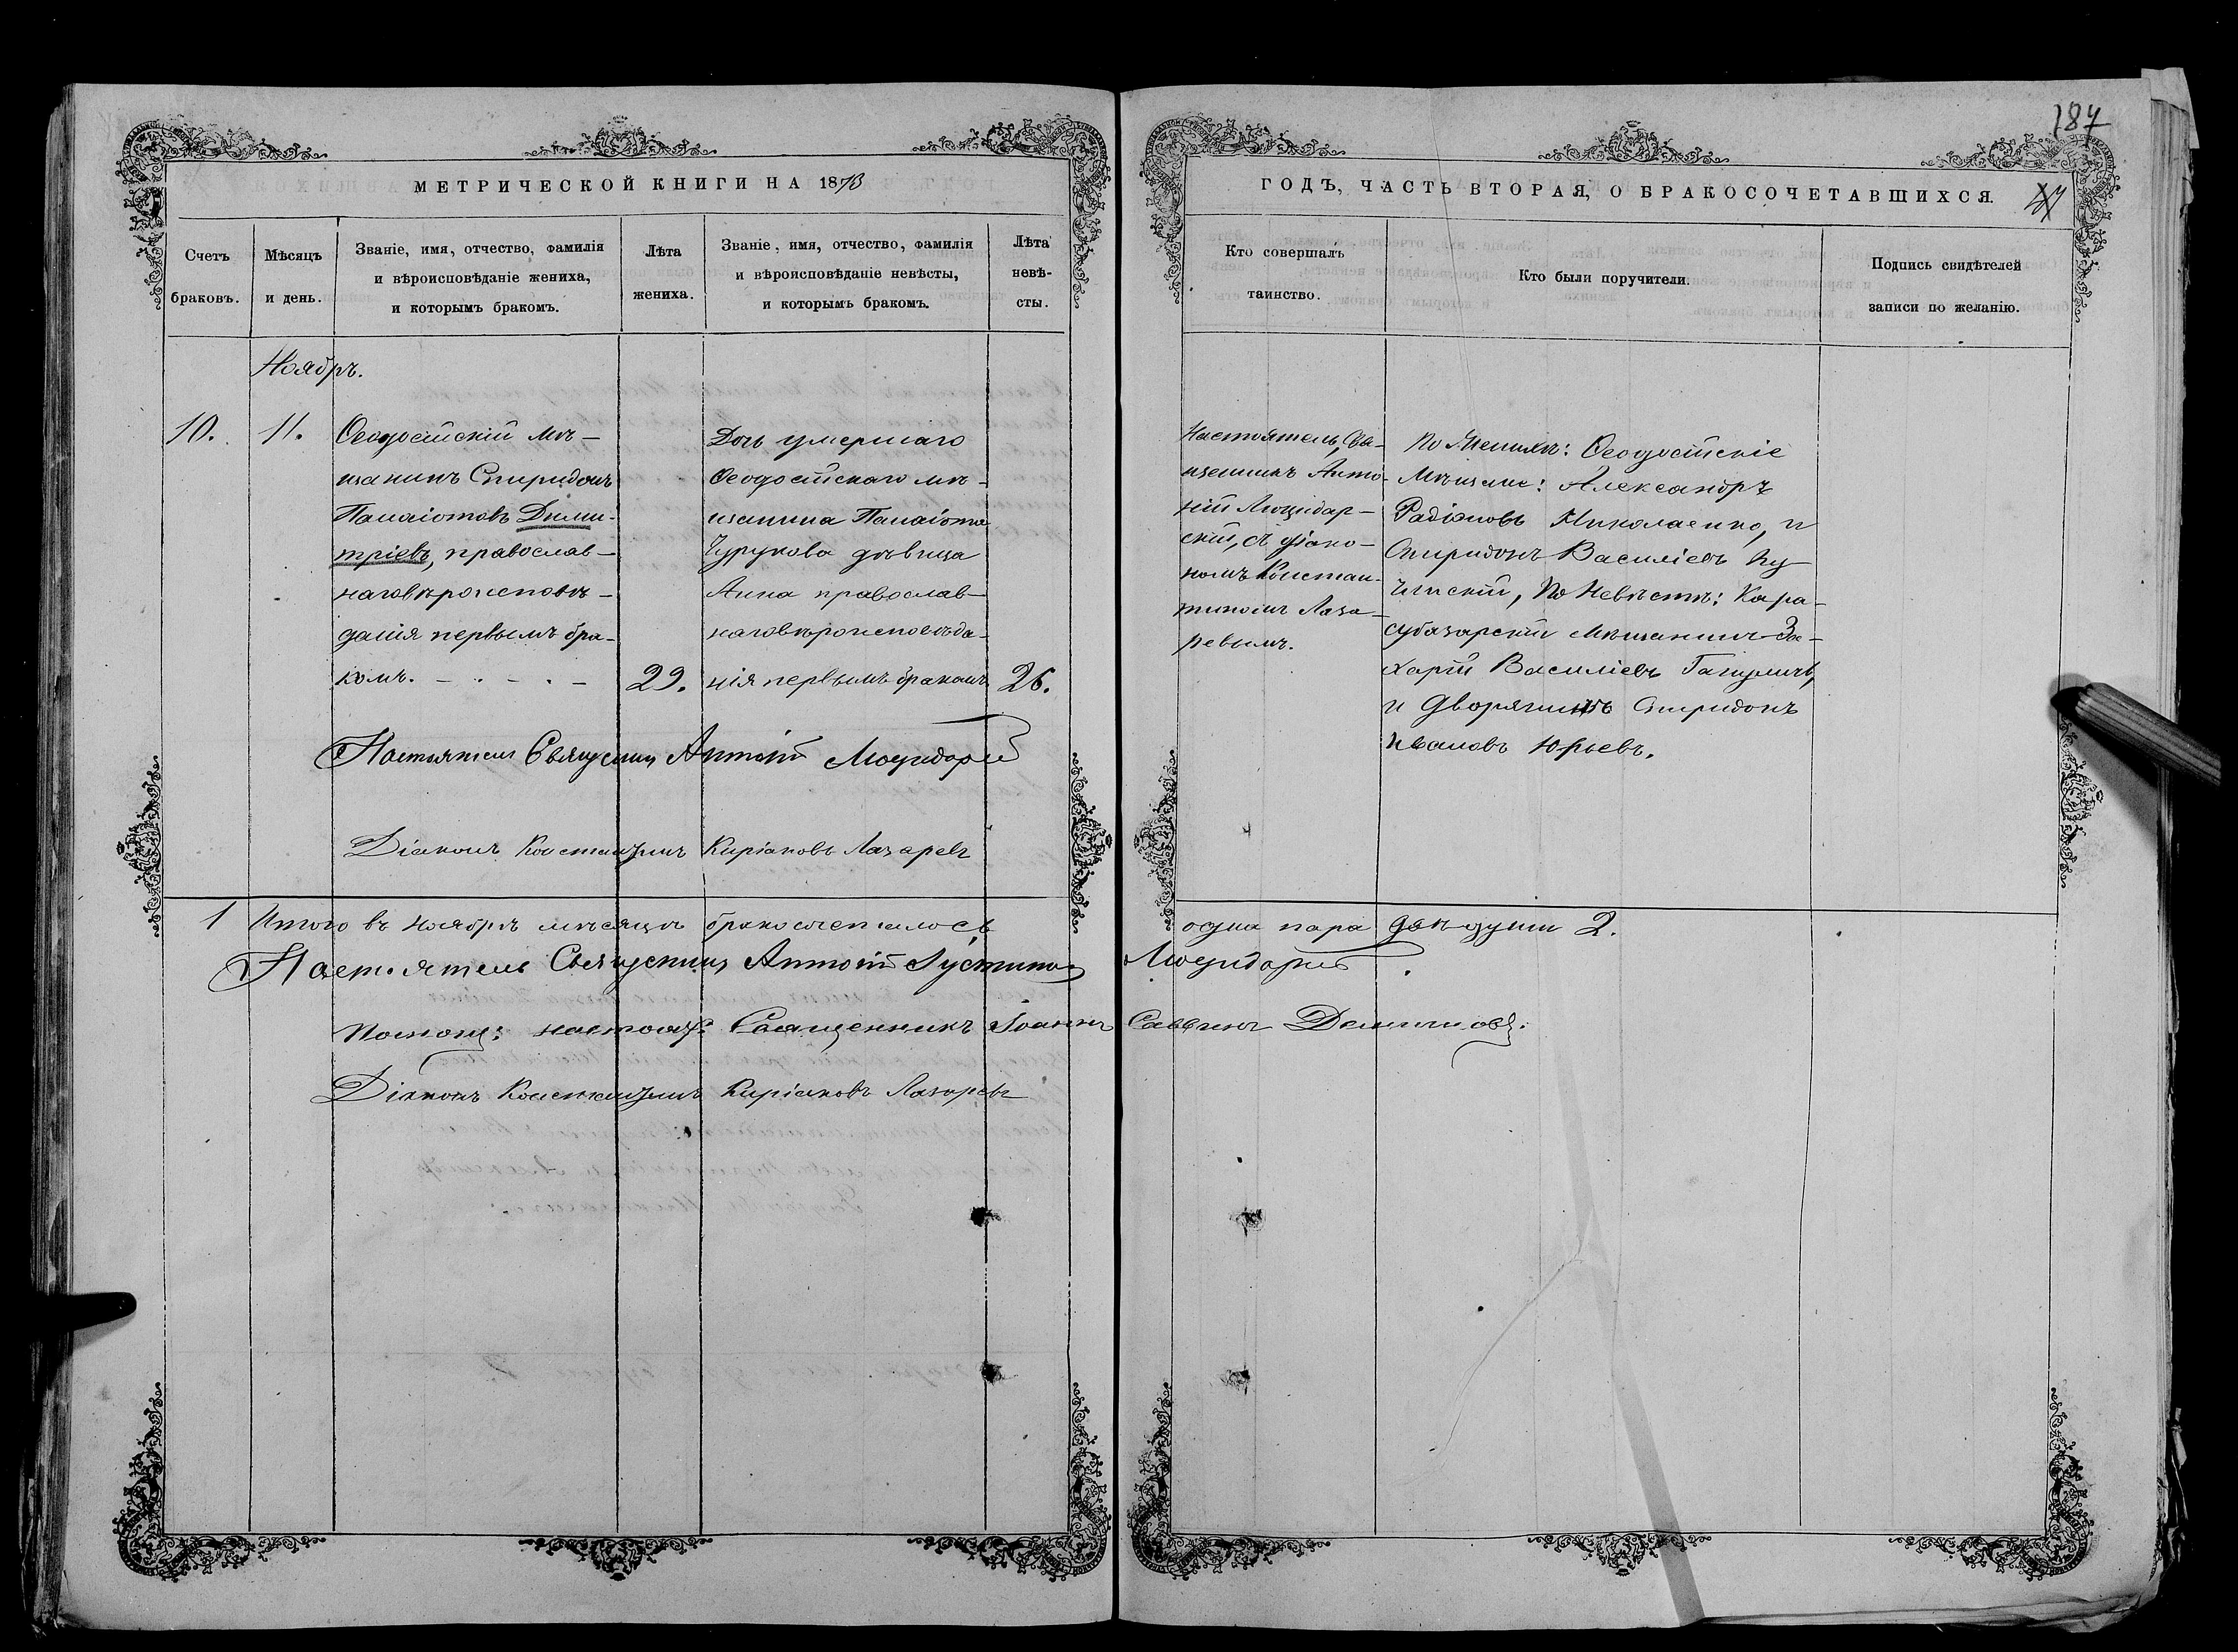 187
МЕТРИЧЕСКОЙ КНИГИ НА 1873
ГОДЪ, ЧАСТЬ ВТОРАЯ, О БРАКОСОЧЕТАВШИХСЯ.
Счетъ
браковъ.
Мѣсяцъ
и день.
Званіе, имя, отчество, фамилія
и вѣроисповѣданіе жениха,
и которымъ бракомъ.
Лѣта
жениха.
Званіе, имя, отчество, фамилія
и вѣроисповѣданіе невѣсты,
и которымъ бракомъ.
Лѣта
невѣ-
сты.
Кто совершалъ
таинство.
Кто были поручители.
Подпись свидѣтелей
записи по желанію.
Ноябрь.
10.
11.
Ѳеодосійскій мѣ-
щанинъ Спиридонъ
Панаіотовъ Дими-
тріевъ, православ-
наго вѣроисповѣ-
данія первымъ бра-
комъ.
29.
Дочь умершаго
Ѳеодосійскаго мѣ-
щанина Панаіота
Чурукова дѣвица
Анна православ-
наго вѣроисповѣда-
нія первымъ бракомъ
26.
Настоятель, Свя-
щенникъ Анто-
ній Люцидар-
скій, съ діако-
номъ Констан-
тиномъ Лаза-
ревымъ.
По Женихѣ: Ѳеодосійскіе
Мѣщане: Александръ
Радіоновъ Николаенко, и
Спиридонъ Василіевъ Ку-
чинскій, По Невѣстѣ: Кара-
субазарскій Мѣщанинъ За-
харій Василіевъ
и Дворянинъ Спиридонъ
Ивановъ Юрьевъ.
Настоятель Священникъ Антоній Люцидарскій
Діаконъ Константинъ Киріаковъ Лазаревъ
1 Итого въ Ноябрѣ мѣсяцѣ бракосочеталось одна пара двѣ души 2.
Настоятель Священникъ Антоній Іустиновъ Люцидарскій
Помощ: настоят: Священникъ Іоаннъ Саввинъ
Діаконъ Константинъ Киріаковъ Лазаревъ